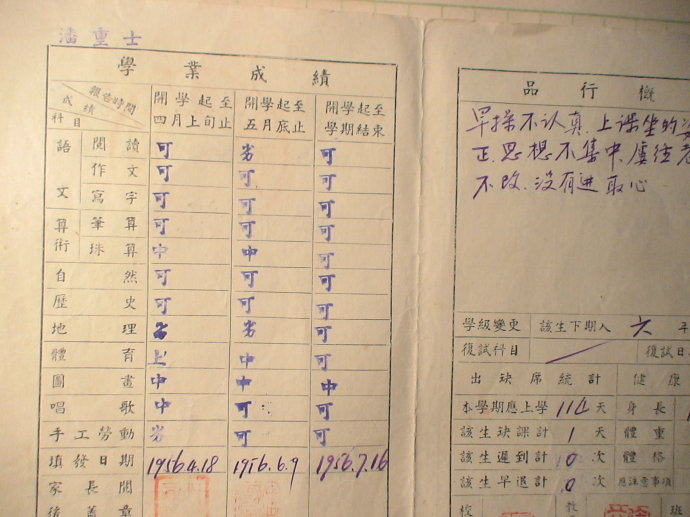 潘重士
學業成績
報告時間
成績
科目
開學起至四月上旬止
開學起至五月底止
開學起至學期結束
語文
閱讀 可 劣 可
作文 可 可 可
寫字 可 可 可
算術
筆算 可 可 可
珠算 中 中 可
自然 可 可 可
歷史 可 可 可
地理 劣 可
體育 上 中 可
圖畫 中 中 中
唱歌 中 可 可
手工勞動 劣 可 可
填發日期 1956.4.18 1956.6.9 1956.7.16
家長閱
後蓋章
品行概
早操不认真.上课坐的姿
正.思想不集中.屡
不改.没有进取心
學級變更 該生下期入 六 年
復試科目 復試日
出缺席統計 健康
本學期應上學 114 天 身長
該生缺課計 1 天 體重
該生遲到計 0 次 體格
該生早退計 0 次 應注意事項
校 教 班